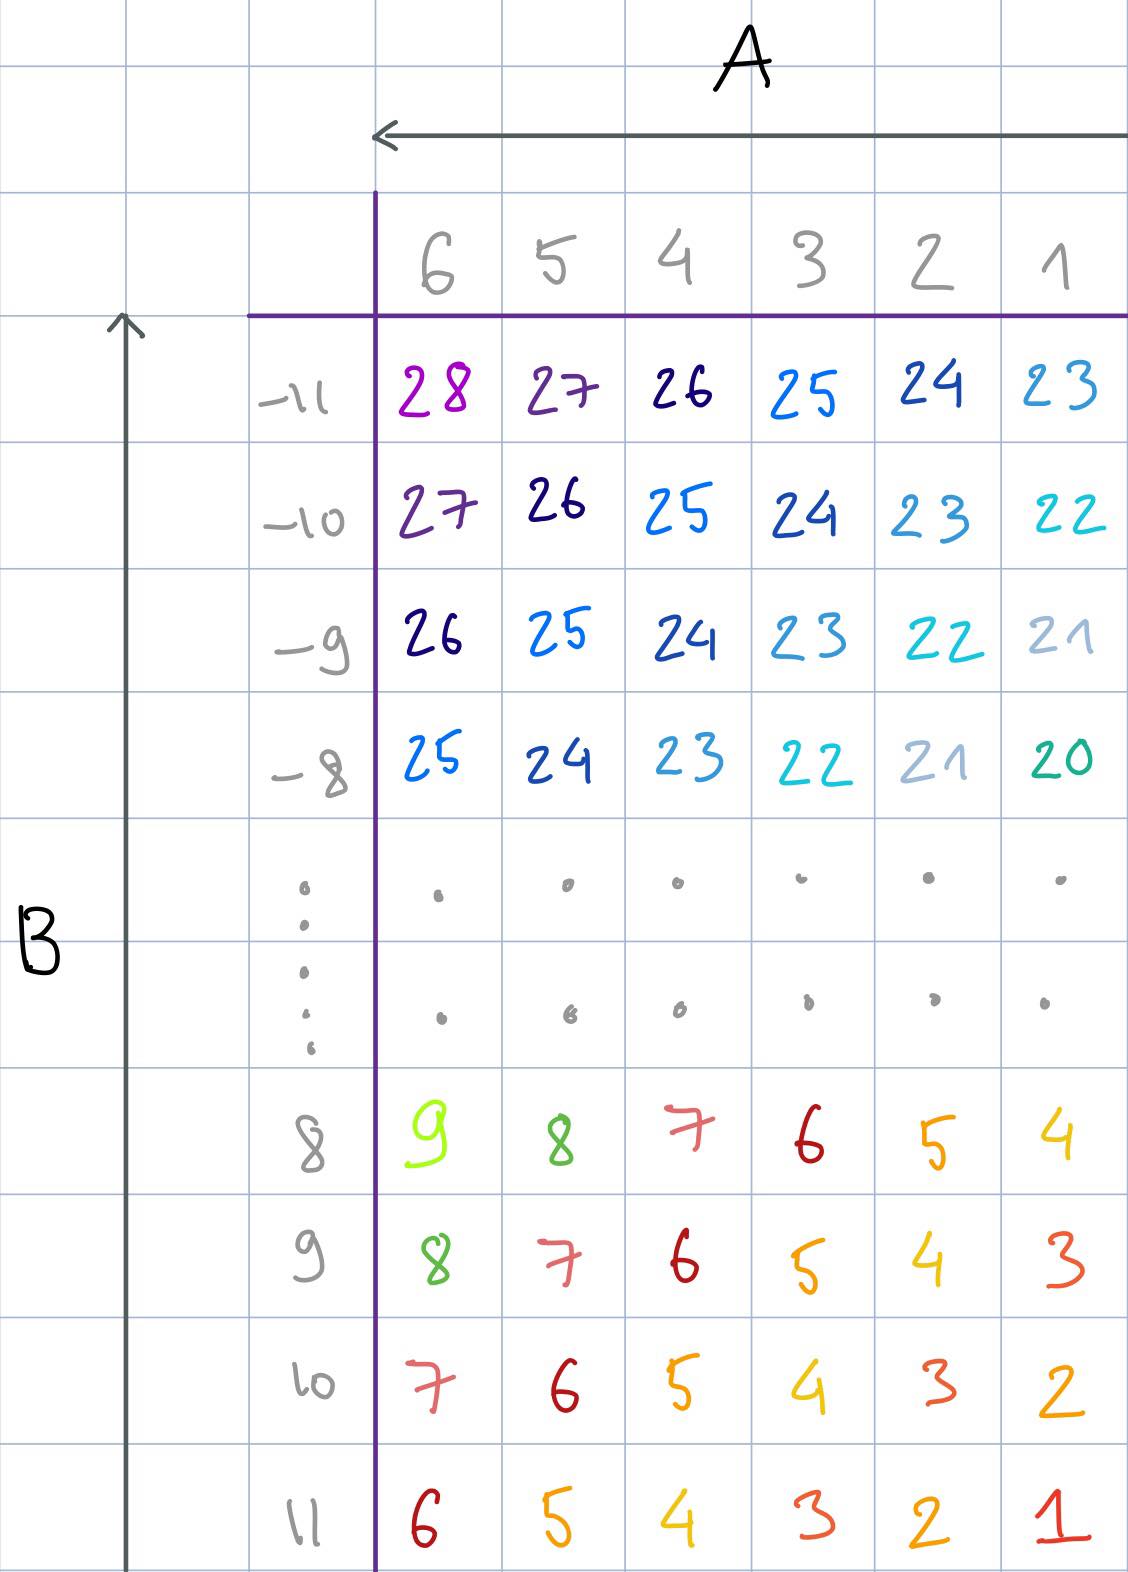 A
6 5 4 3 2 1
-11 28 27 26 25 24 23
-10 27 26 25 24 23 22
-9 26 25 24 23 22 21
-8 25 24 23 22 21 20
B
8 9 8 7 6 5 4
9 8 7 6 5 4 3
10 7 6 5 4 3 2
11 6 5 4 3 2 1